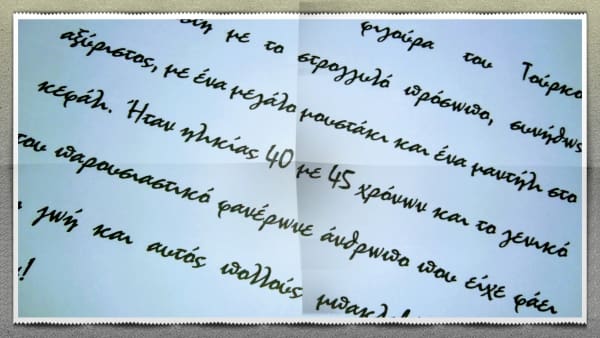 με το φιγούρα του Τούρκο
αξύριστος, με ένα μεγάλο στρογγυλό πρόσωπο, συνήθως
κεφάλι. Ήταν ηλικίας 40 με 45 μουστάκι και ένα μαντήλι στο
του παρουσιαστικό φανέρωνε χρόνων και το γενικό
ζωή και αυτός πολλούς άνθρωπο που είχε φάει